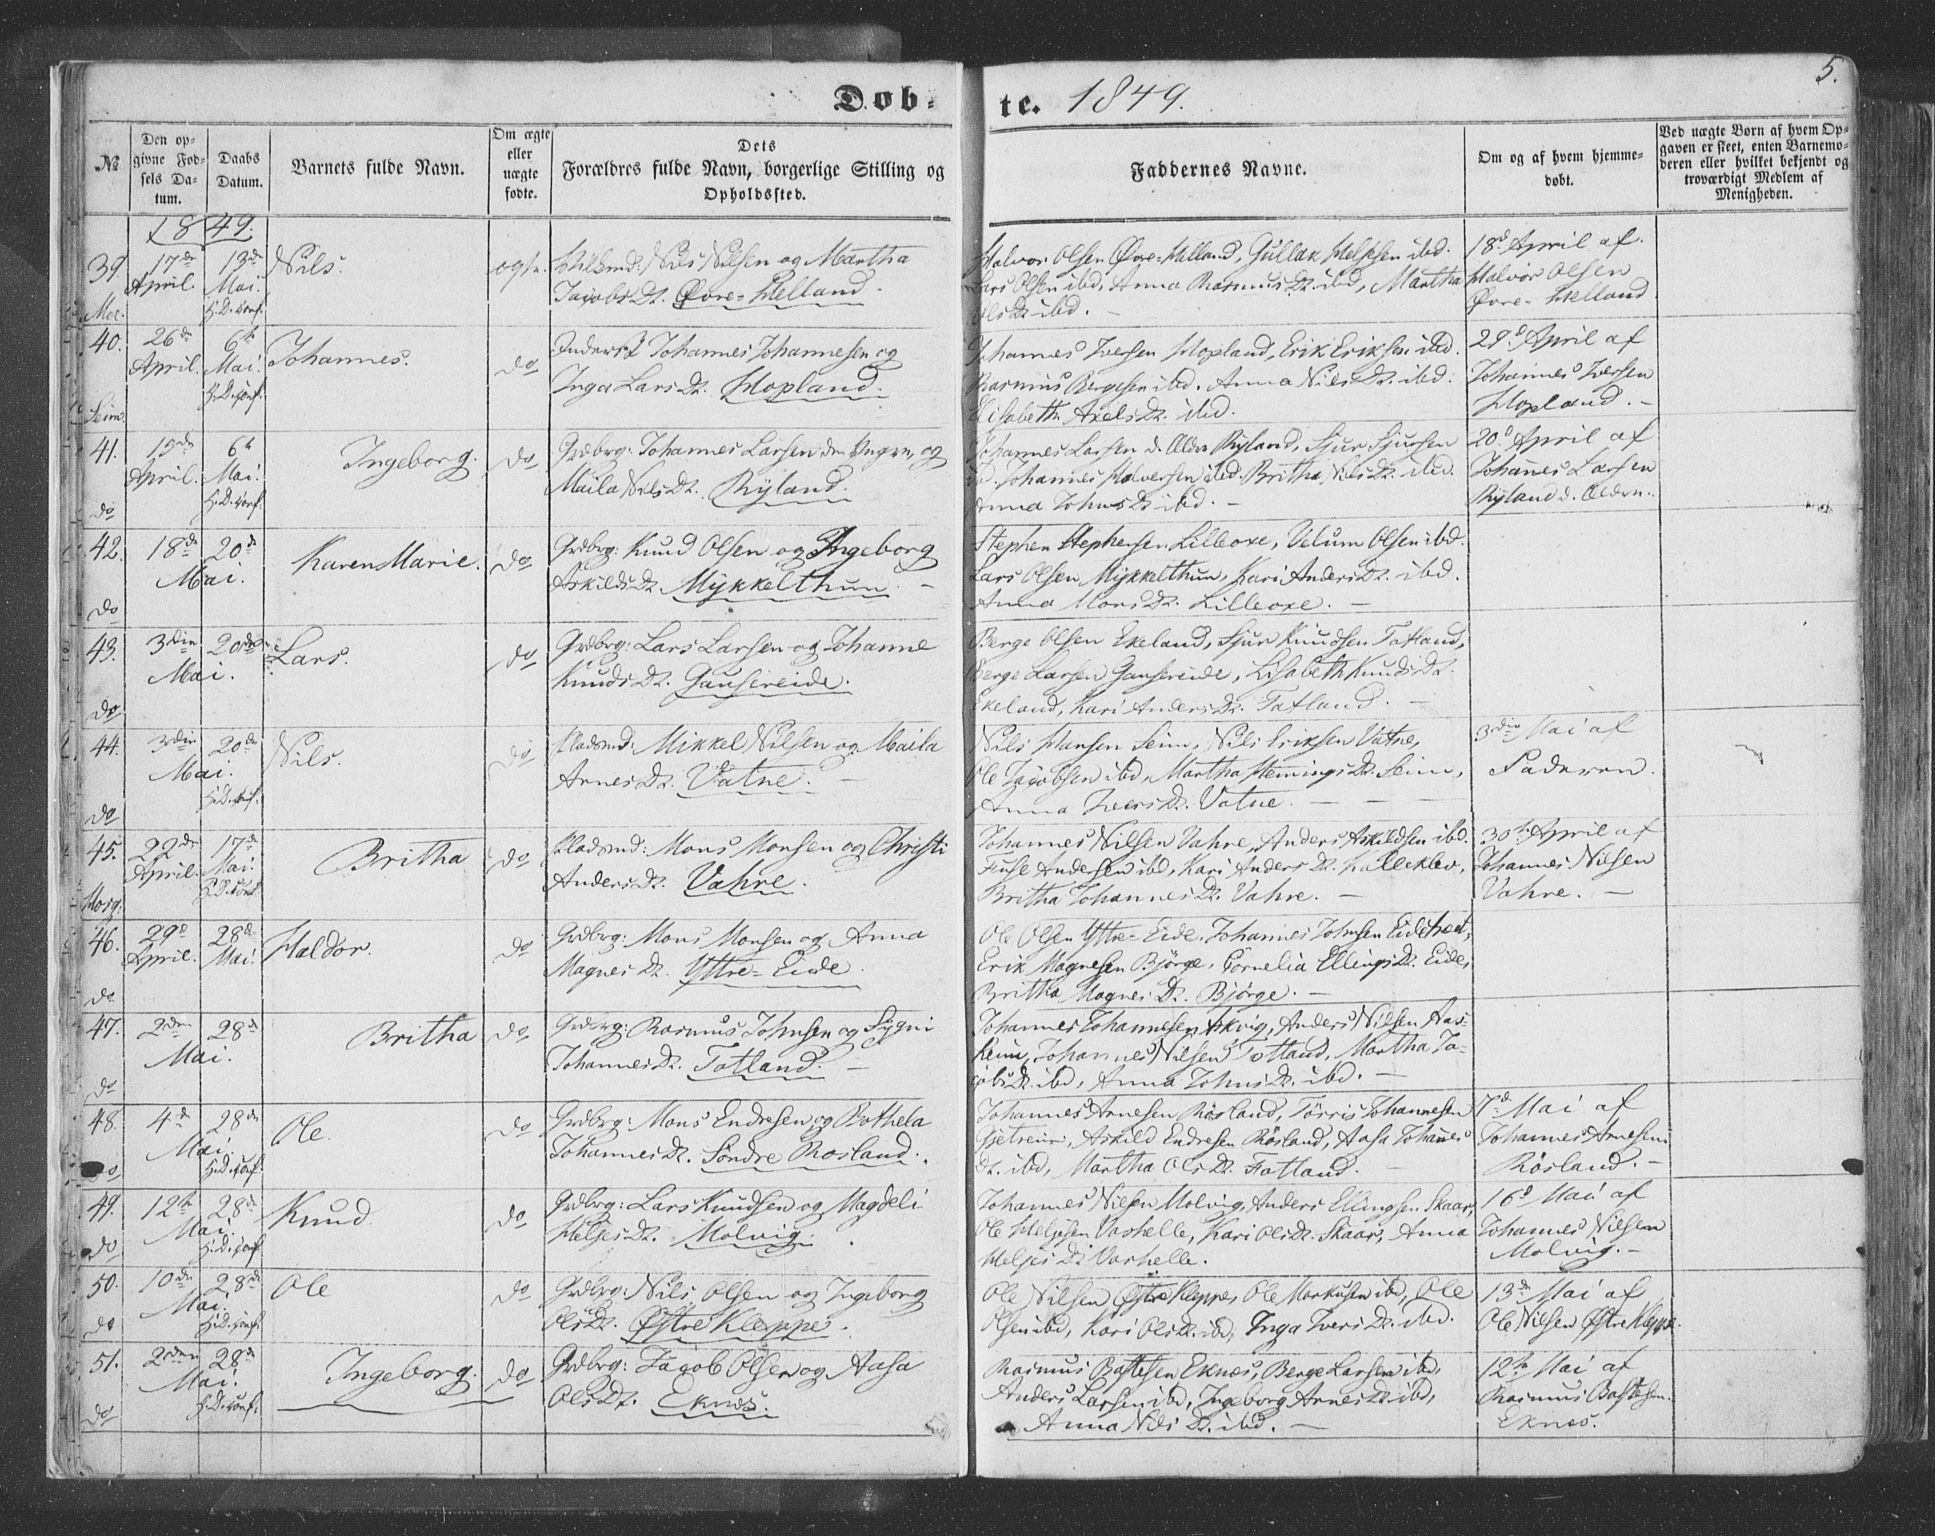 Døb-
te. 1849.
5.
№
Den opgivne Fødsels Datum.
Daabs Datum.
Barnets fulde Navn.
Om ægte eller uægte fødte.
Dets Forældres fulde Navn, borgerlige Stilling og Opholdssted.
Faddernes Navne.
Om og af hvem hjemmedøbt.
Ved uægte Børn af hvem Opgaven er skeet, enten Barnemoderen eller hvilket bekjendt og troværdigt Medlem af Menigheden.
1849.
39. 17de April. 13de Mai. H.D. conf. Nils.
Nils Nilsen og Martha
Jacobs Dt. Øvre-Helland.
Halvor Olsen Øvre-Helland, Gullak Heljesen ibd.
Lars Olsen ibd, Anna Rasmus Dt. ibd, Martha
Ols Dt. ibd.
18d April af
Halvor Olsen
Øvre-Helland
Moe.
40. 26de April. 6te Mai. H.D. conf. Johannes. do
Inderst Johannes Johannesen og
Inga Lars Dt. Hopland.
Johannes Iversen Hopland, Erik Eriksen ibd.
Rasmus Bergesen ibd. Anna Nils Dt. ibd.
Elisabeth Axels Dt. ibd.
29d April af
Johannes Iversen
Hopland. -
Seim.
41. April. 6te Mai. H.D. conf. Ingeborg. do
Grdbrg: Johannes Larsen den Yngre, og
Maila Nils Dt. Ryland.
Johannes Larsen d. Ældre Ryland, Sjur Sjursen
ibd. Johannes Halversen ibd. Britha Nils Dt. ibd.
Anna Johns Dt. ibd. -
20d April af
Johannes Larsen
Ryland d. Ældre.
do
42. 18de 20d Mai. Karen Marie. do
Grdbrg: Knud Olsen og Ingeborg
Askilds Dt. Mykkelthun. -
Stephen Stephensen Lilleoxe, Velum Olsen ibd.
Lars Olsen Mykkelthun, Kari Anders Dt. ibd.
Anna Mons Dt. Lilleoxe. -
do
43. 3die 20de Mai. Lars. do
Grdbrg: Lars Larsen og Johanne
Knuds Dt. Gausereide.
Berge Olsen Ekeland, Sjur Knudsen Totland,
Berge Larsen Gausereide, Lisabeth Knuds Dt.
Ekeland, Kari Anders Dt. Totland. -
do
44. 3die 20de Mai. H.D. conf. Nils. do
Pladsmd: Mikkel Nilsen og Maila
Arnes Dt. Vatne. -
Nils Hansen Seim, Nils Eriksen Vatne,
Ole Jacobsen ibd, Martha Flemings Dt. Seim,
Anna Ivers Dt. Vatne. -
3die Mai af
Faderen.
do
45. April. 17de Mai. H.D. conf. Britha do
Pladsmd: Mons Monsen og Christi
Anders Dt. Vahre.
Johannes Nilsen Vahre, Anders Askildsen ibd.
Andersen ibd, Kari Anders Dt. Kalleklev,
Britha Johannes Dt. Vahre. -
30te April af
Johannes Nilsen
Vahre. -
Hosg.
46. 29d April. 28de Mai. Haldor. do
Grdbrg: Mons Monsen og Anna
Magnes Dt. Yttre-Eide.
Ole Olsen Yttre-Eide, Johannes Johnsen Eidetræet,
Erik Magnesen Bjørge, Cornelia Ellings Dt. Eide,
Britha Magnes Dt. Bjørge. -
do
47. 2den 28de Mai. Britha do
Grdbrg: Rasmus Johnsen og Sygni
Johannes Dt. Totland. -
Johannes Johannesen Askvig, Anders Nilsen Aas-
heim, Johannes Nilsen Totland, Martha Ja-
cobs Dt. ibd, Anna Johns Dt. ibd. -
do
48. 4d 28de Mai. H.D. conf. Ole. do
Grdbrg: Mons Endresen og Bothela
Johannes Dt. Søndre Røsland.
Johannes Arnesen Røsland, Tørris Johannesen
Askild Endresen Røsland, Aasa Johannes
Dt. ibd, Martha Ols Dt. Totland. -
7de Mai af
Johannes Arnesen
Røsland. -
do
49. 12te 28de Mai. H.D. conf. Knud do
Grdbrg: Lars Knudsen og Magdeli
Heljes Dt. Molvig.
Johannes Nilsen Molvig, Anders Ellingsen Skaar,
Ole Heljesen Varhelle, Kari Ols Dt. Skaar, Anna
Heljes Dt. Varhelle.
16d Mai af
Johannes Nilsen
Molvig. -
do
50. 10de 28de Mai. H.D. conf. Ole do
Grdbrg: Nils Olsen og Ingeborg
Ols Dt. Østre Kleppe.
Ole Nilsen Østre Kleppe, Ole Markusen ibd, Ole
Olsen ibd, Kari Ols Dt. ibd, Inga Ivers Dt. ibd.
13de Mai af
Ole Nilsen Østre Kleppe.
do
51. 2den 28de Mai. H.D. conf. Ingeborg. do
Grdbrg: Jacob Olsen og Aasa
Ols Dt. Eknes.
Rasmus Bastesen Eknes, Berge Larsen ibd,
Anders Larsen ibd, Ingeborg Arnes Dt. ibd,
Anna Nils Dt. ibd. -
12te Mai af
Rasmus Bastesen
Eknes.
do